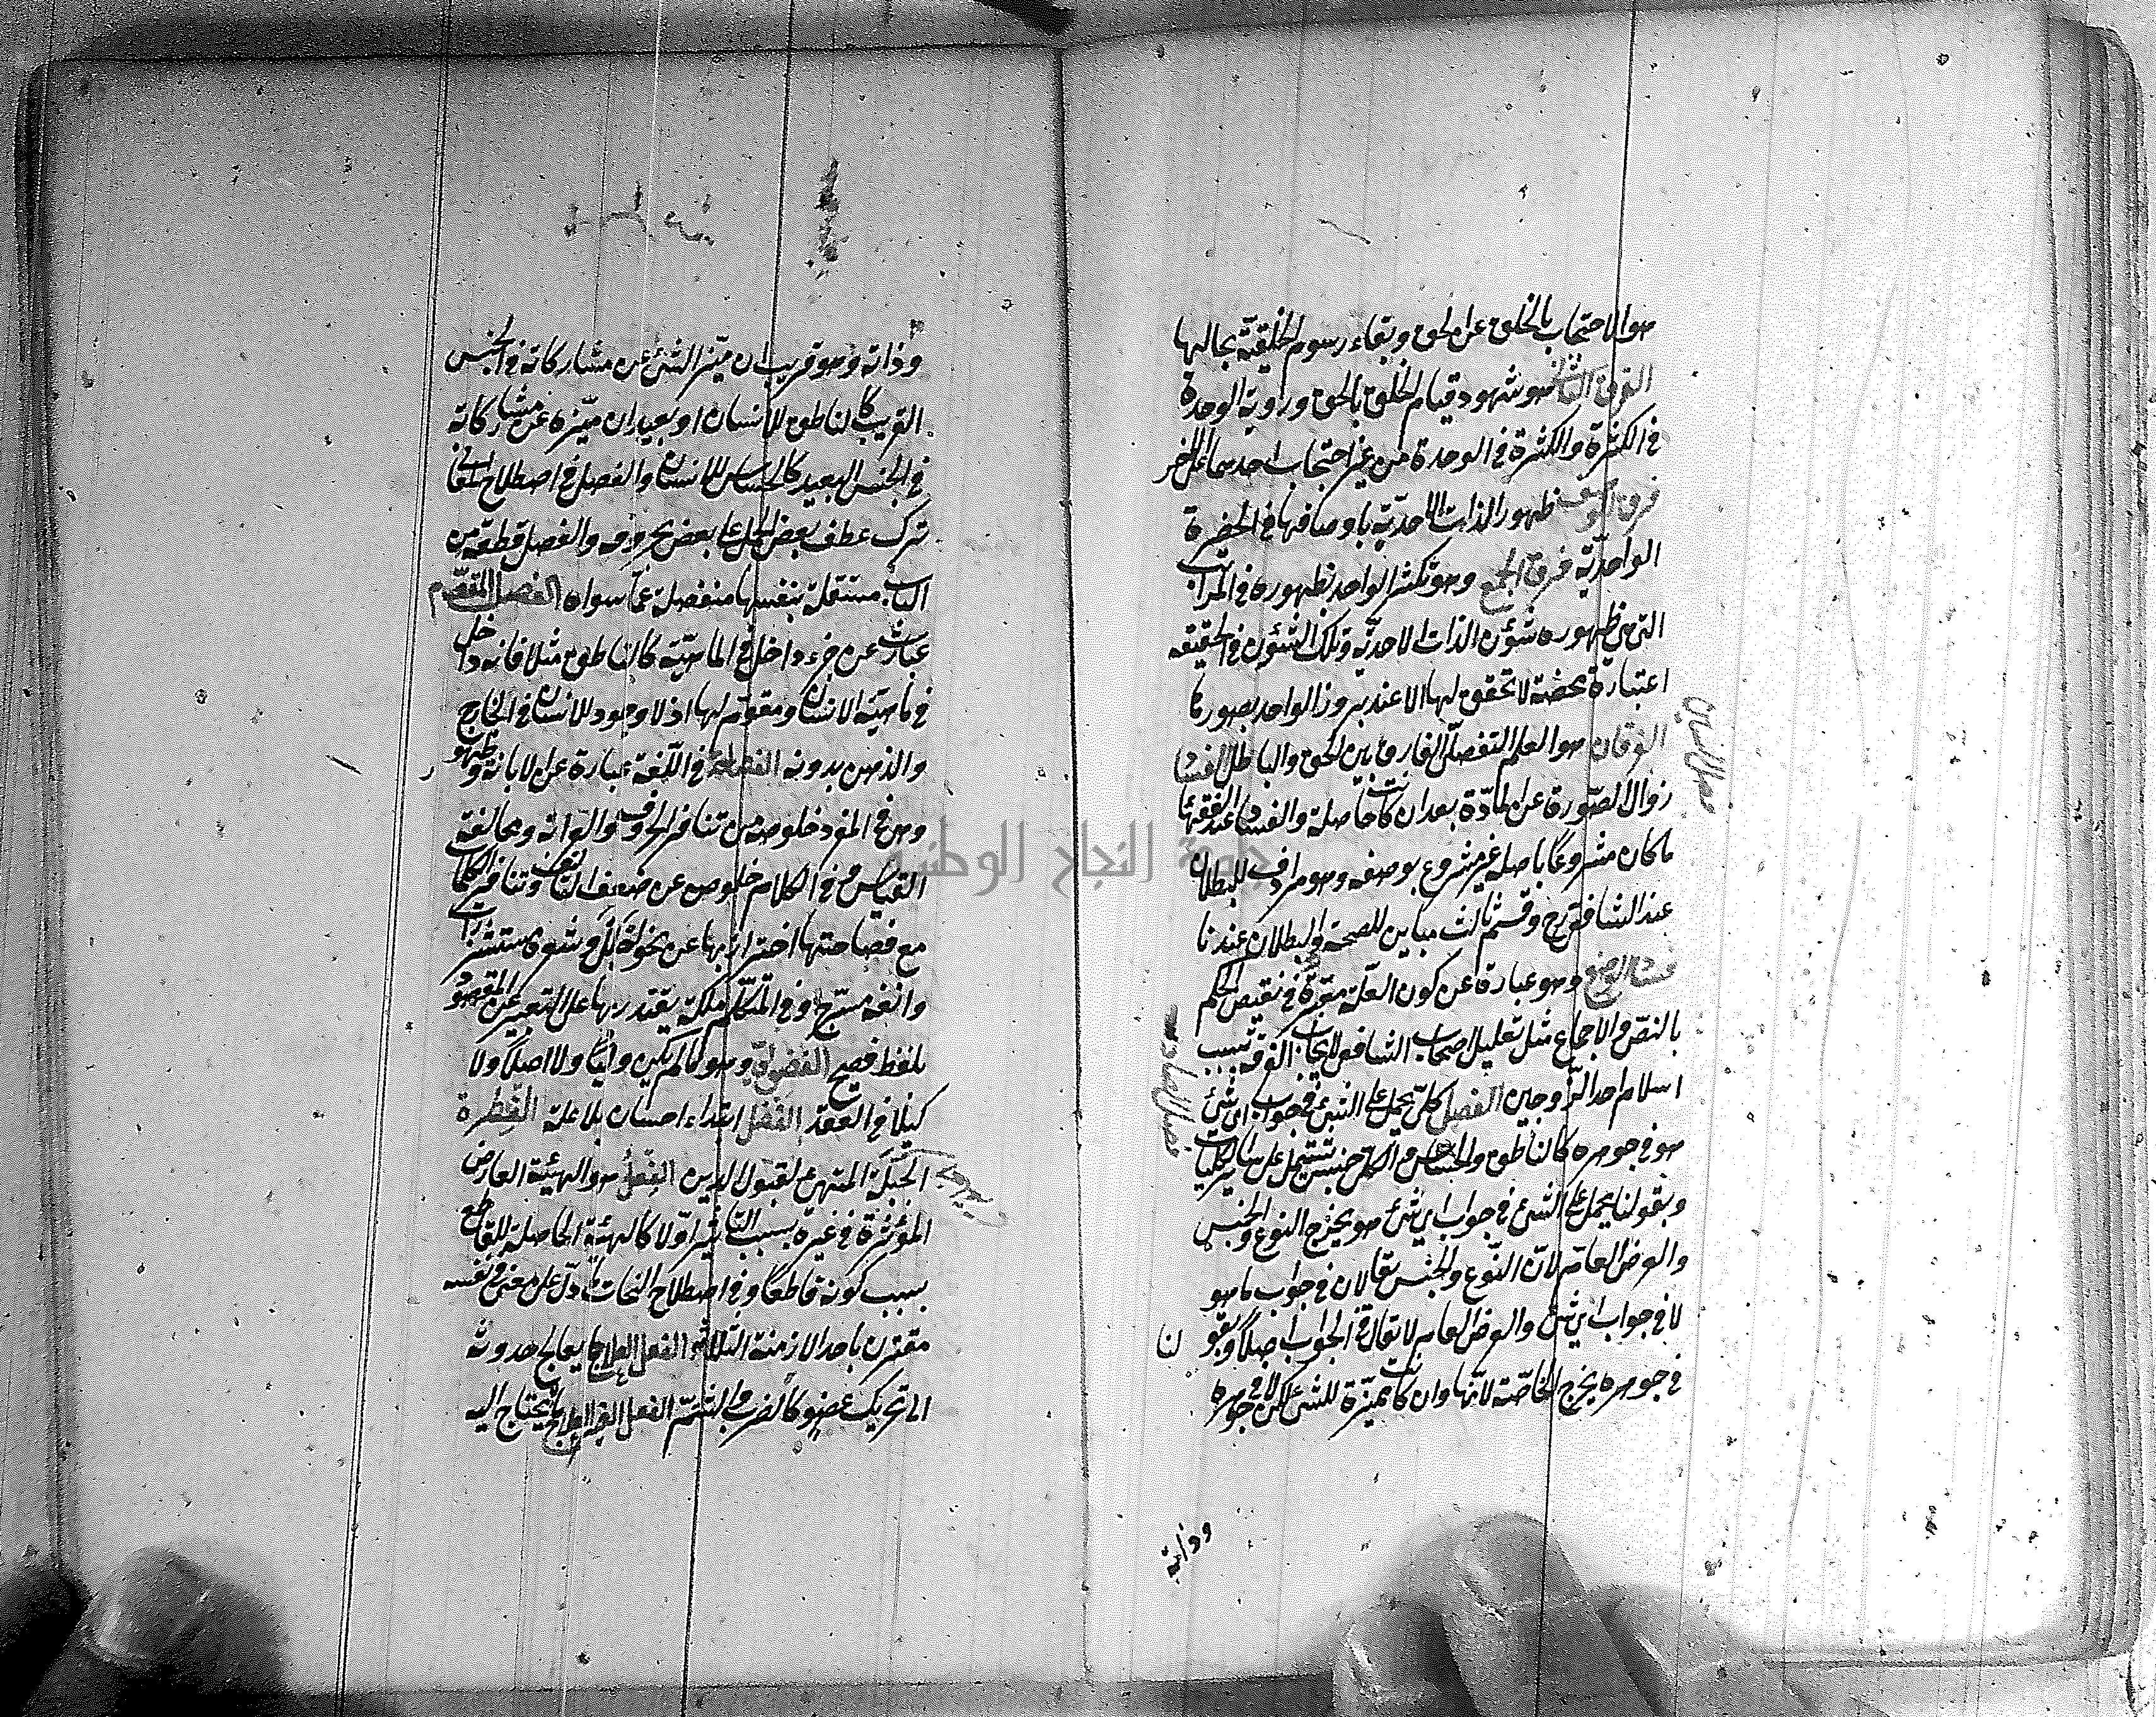 هو الاحتجاب بالخلق عن الحق وبقاء رسوم الخلقية بحالها
الفرق الثاني هو شهود قيام الخلق بالحق وراوية الوحدة
في الكثرة والكثرة في الوحدة من غير احتجاب احدهما عن الاخر
فرق الوصف ظهور الذات الاحدية باوصافها في الحضرة
الواحدية فرق الجمع وهو تكثر الواحد بظهوره في المراتب
التي هي ظهوره شؤن الذات الاحدية وتلك الشؤن في الحقيقة
اعتبارة محضة لا تحقق لها الا عند بروز الواحد بصورها
الفرقان هو العلم التفصلي الفارق بين الحق والباطل الفساد
زوال الصورة عن المادة بعد ان كانت حاصلة والفساد عند الفقهاء
ما كان مشروعا باصله غير مشروع بوصفه وهو مرادف للبطلان
عند الشافعي رح وقسم ثالث مباين للصحة والبطلان عندنا
فساد الوضع وهو عبارة عن كون العلة معتبرة في نقيض الحكم
بالنص والاجماع مثل تعليل اصحاب الشافعي لايجاب الفرقة بسبب
اسلام احد الزوجين الفصل كلي يحمل على الشئ في جواب اي شئ
هو في جوهره كالناطق والحساس فالكلي جنس يشتمل على سائر الكليات
وبقولنا يحمل على الشئ في جواب اي شئ هو يخرج النوع والجنس
والعرض العام لان النوع والجنس يقالان في جواب ما هو
لا في جواب اي شئ والعرض العام لا يقال في الجواب اصلا وبقو لنا
في جوهره يخرج الخاصة لانها وان كانت مميزة للشئ لكن لا في جوهره
وذاته
وذاته وهو قريب ان ميز الشئ عن مشاركاته في الجنس
القريب كالناطق للانسان او بعيد ان ميزه عن مشاركاته
في الجنس البعيد كالحساس للانسان والفصل في اصطلاح المعاني
ترك عطف بعض الجمل على بعض بحروفه والفصل قطعة من
الباب مستقلة بنفسها منفصلة عما سواه الفصل المقوم
عبارة عن جزء داخل في الماهية كالناطق مثلا فانه داخل
في ماهية الانسان ومقوم لها اذ لا وجود للانسان في الخارج
والذهن بدونه الفصاحة في اللغة عبارة عن الابانة والظهور
وهي في المفرد خلوصه من تنافر الحروف والغرابة ومخالفة
القياس وفي الكلام خلوصه عن ضعف التاليف وتنافر الكلمات
مع فصاحتها احترازبها عن نحو زيد اجلل وشعره مستشزرات
وانفه مسرج وفي المتكلم ملكة يقتدر بها على التعبير عن المقصود
بلفظ فصيح الفضولي وهو كالم يكن وليا ولا اصيلا ولا
كيلا في العقد الفضل ابتداء احسان بلا علة الفطرة
الجبلة المتهيئ لقبول الدين الفعل هو الهيئة العارض
المؤثرة في غيره بسبب التاثير اولا كالهيئة الحاصلة للقاطع
بسبب كونه قاطعا وفي اصطلاح النحات ما دل على معنى في نفسه
مقترن باحد الازمنة الثلاثة الفعل العلاجي ما يحتاج حدوثه
الى تحريك عضو كالضرب والشتم الفعل الغير العلاجي ما لا يحتاج اليه
جامعة النجاح الوطنية